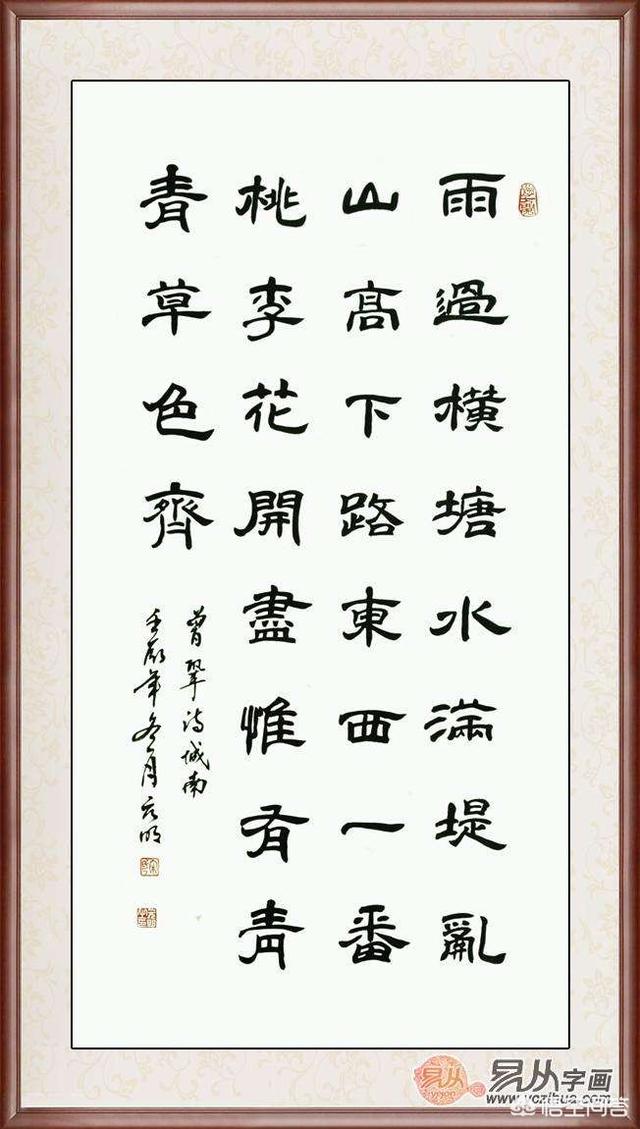 雨過橫塘水滿堤亂
山高下路東西一番
桃李花開盡惟有青
青草色齊
曾鞏詩城南
壬辰年冬月
易从
易从字画
www.yczihua.com
悟空问答